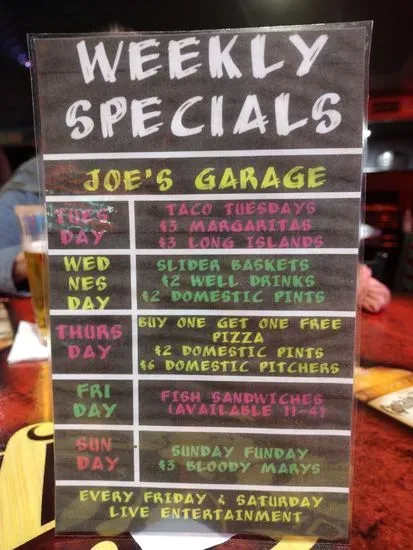 WEEKLY
SPECIALS
JOE'S GARAGE
TUES
DAY
TACO TUESDAYS
$3 MARGARITAS
$3 LONG ISLANDS
WED
NES
DAY
SLIDER BASKETS
$2 WELL DRINKS
$2 DOMESTIC PINTS
THURS
DAY
BUY ONE GET ONE FREE
PIZZA
$2 DOMESTIC PINTS
$6 DOMESTIC PITCHERS
FRI
DAY
FISH SANDWICHES
(AVAILABLE 11-4)
SUN
DAY
SUNDAY FUNDAY
$3 BLOODY MARYS
EVERY FRIDAY & SATURDAY
LIVE ENTERTAINMENT